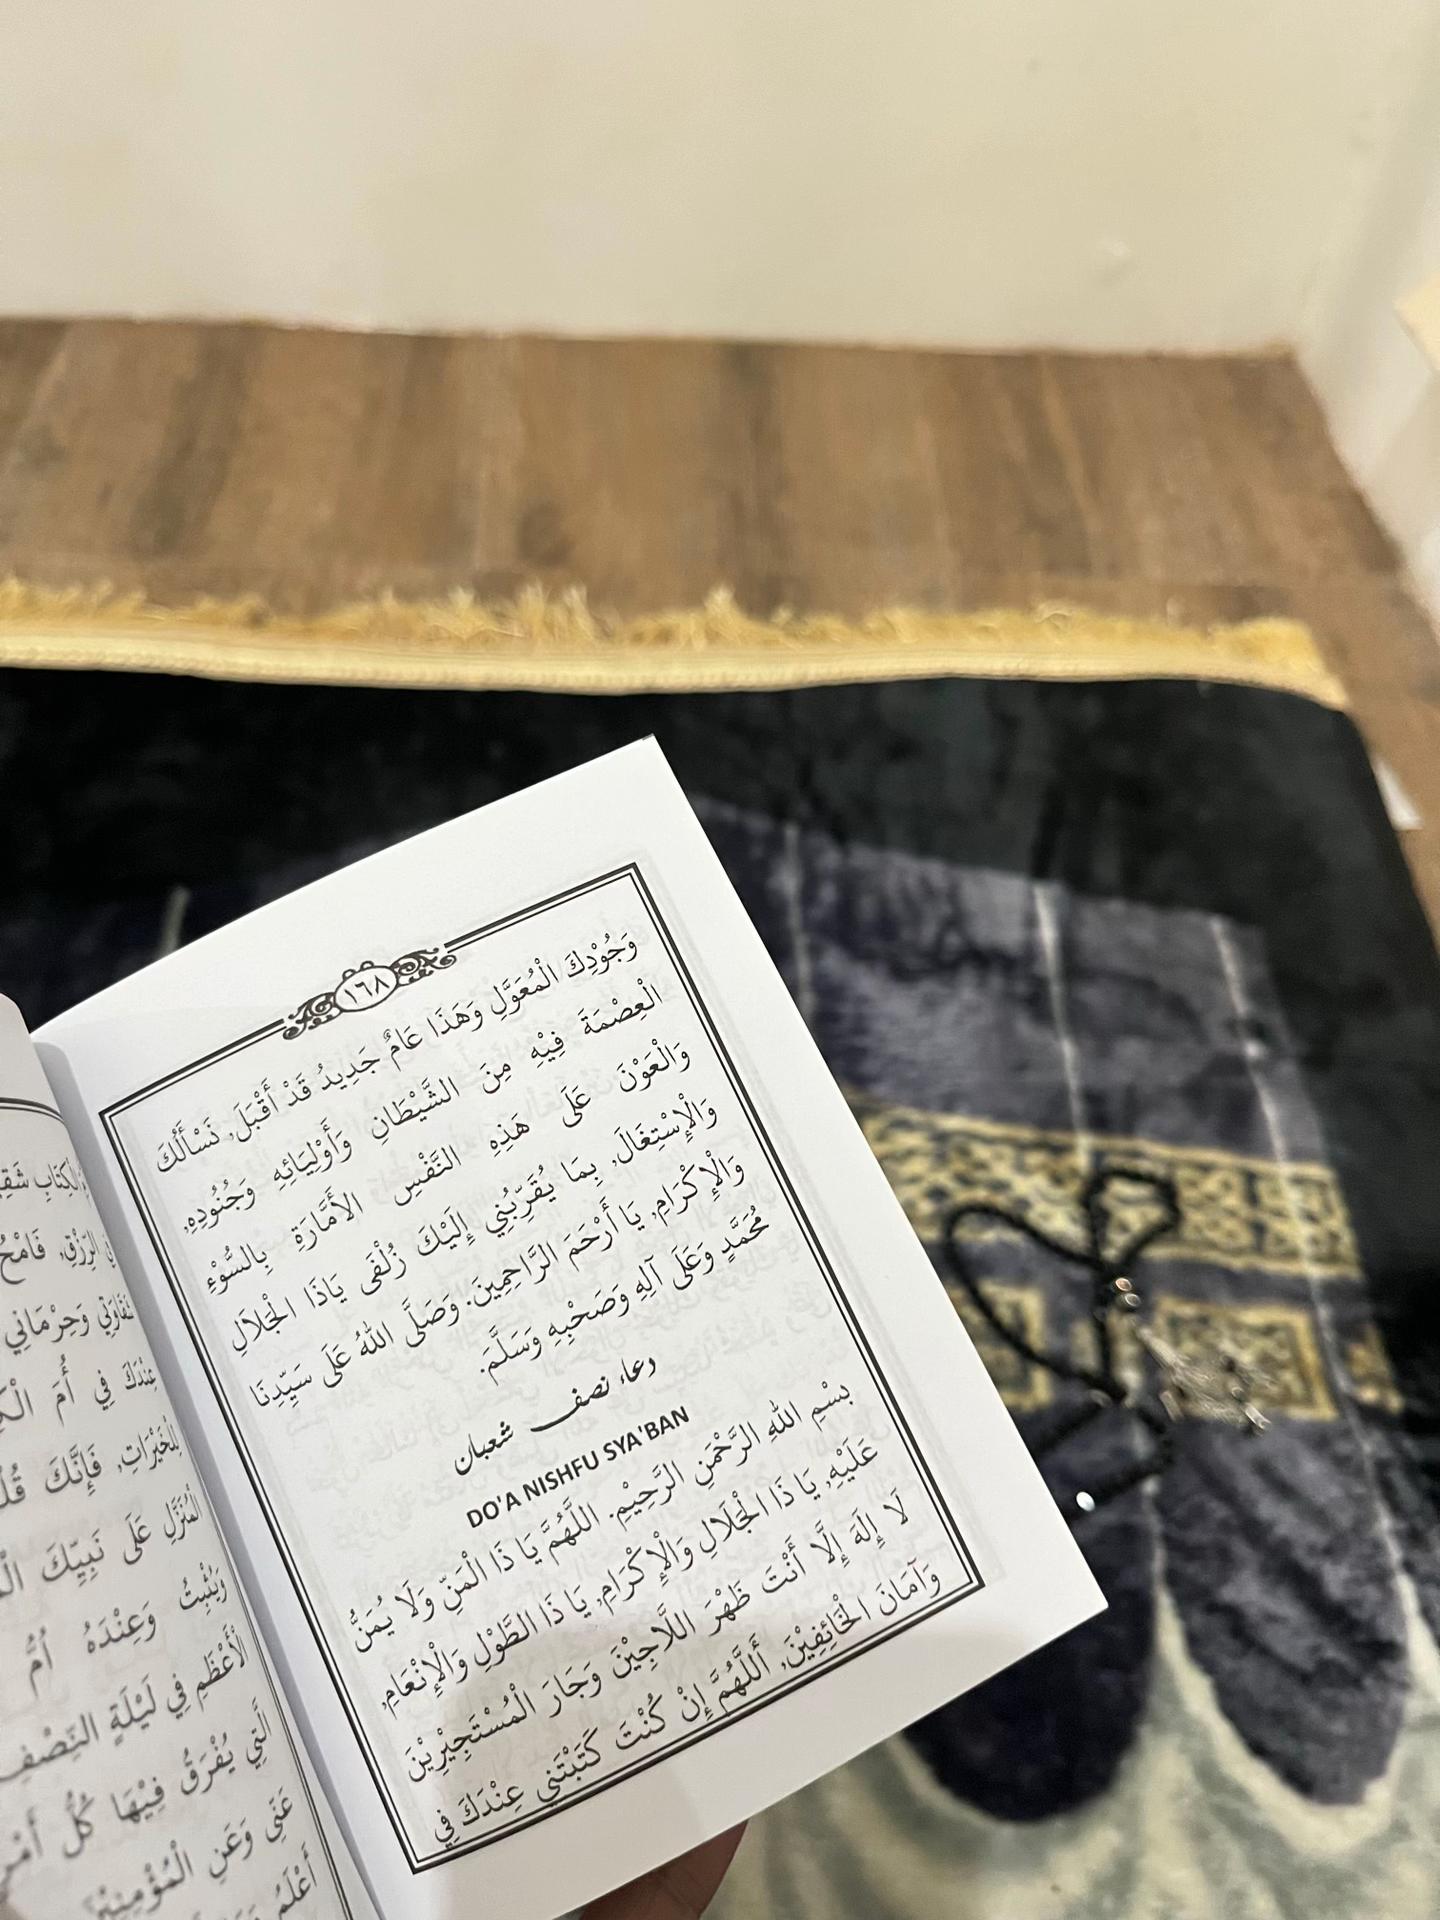 ١٦٨
وَجُوْدِكَ الْمُعَوَّلِ وَهَذَا عَامٌ جَدِيدُ قَدْ أَقْبَلَ، نَسْأَلُكَ
الْعِصْمَةَ فِيْهِ مِنَ الشَّيْطَانِ وَأَوْلِيَائِهِ وَجُنُودِهِ،
وَالْعَوْنَ عَلَى هَذِهِ النَّفْسِ الأَمَّارَةِ بِالسُّوْءِ
وَالْإِسْتِغَالَ، بِمَا يُقَرِّبُنِي إِلَيْكَ زُلْفَى يَاذَا الْجَلَالِ
وَالْإِكْرَامِ، يَا أَرْحَمَ الرَّاحِمِينَ. وَصَلَّى اللهُ عَلَى سَيِّدِنَا
مُحَمَّدٍ وَعَلَى آلِهِ وَصَحْبِهِ وَسَلَّمَ.
دعاء نصف شعبان
DO'A NISHFU SYA'BAN
بِسْمِ اللهِ الرَّحْمَنِ الرَّحِيْمِ. اللَّهُمَّ يَا ذَا الْمَنِّ وَلَا يُمَنُّ
عَلَيْهِ، يَا ذَا الْجَلَالِ وَالْإِكْرَامِ، يَا ذَا الطَّوْلِ وَالْإِنْعَامِ،
لَا إِلَهَ إِلَّا أَنْتَ ظَهْرَ اللَّاجِيْنَ وَجَارَ الْمُسْتَجِيْرِيْنَ
وَآمَانَ الْخَائِفِيْنَ، أَللَّهُمَّ إِنْ كُنْتَ كَتَبْتَنِي عِنْدَكَ فِي
الْكِتَابِ
الرِّزْقِ، فَامْحُ
وَحِرْمَانِي
عِنْدَكَ فِي أُمِّ
لِلْخَيْرَاتِ، فَإِنَّكَ
الْمُنَزَّلِ عَلَى نَبِيِّكَ
وَيُثْبِتُ وَعِنْدَهُ أُمُّ
الْأَعْظَمِ فِي لَيْلَةِ النِّصْفِ
الَّتِي يُفْرَقُ فِيْهَا كُلُّ أَمْرٍ
عَنِّي وَعَنِ الْمُؤْمِنِيْنَ